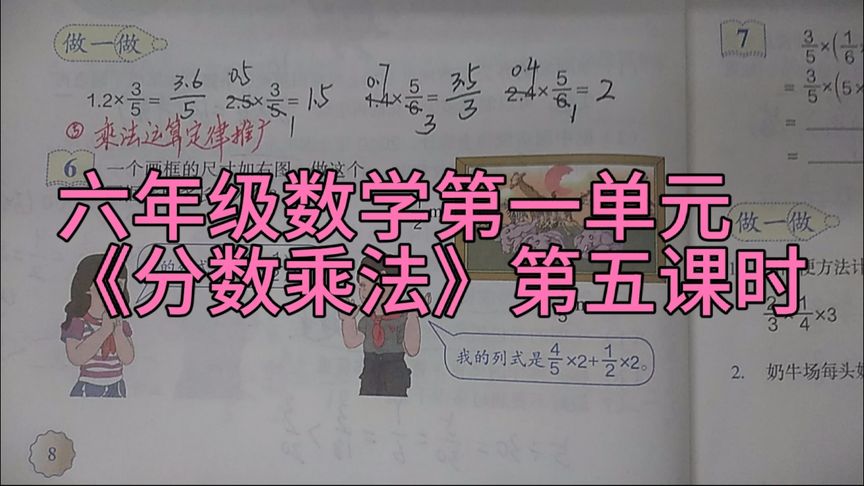 做一做
1.2×3/5=3.6/5 2.5×3/5=1.5 1.4×5/6=3.5/3 2.4×5/6=2
0.5 0.7 0.4
1 3 1
⑤乘法运算定律推广
6 一个画框的尺寸如右图,做这个
六年级数学第一单元
《分数乘法》第五课时
我的列式是4/5×2+1/2×2。
8
7
3/5×(1/6
=3/5×(5×
=
=
做一做
便方法计
2/3×1/4×3
2. 奶牛场每头